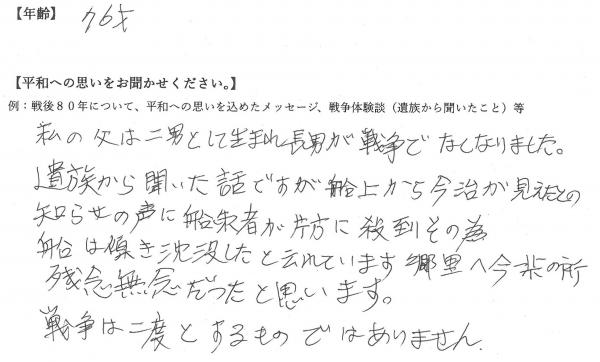 【年齢】 76才
【平和への思いをお聞かせください。】
例：戦後８０年について、平和への思いを込めたメッセージ、戦争体験談（遺族から聞いたこと）等
私の父は二男として生まれ長男が戦争でなくなりました。
遺族から聞いた話ですが船上から今治が見えたとの
知らせの声に船乗者が片方に殺到その為
船は傾き沈没したと云れています 郷里へ今一歩の所
残念無念だったと思います。
戦争は二度とするものではありません。